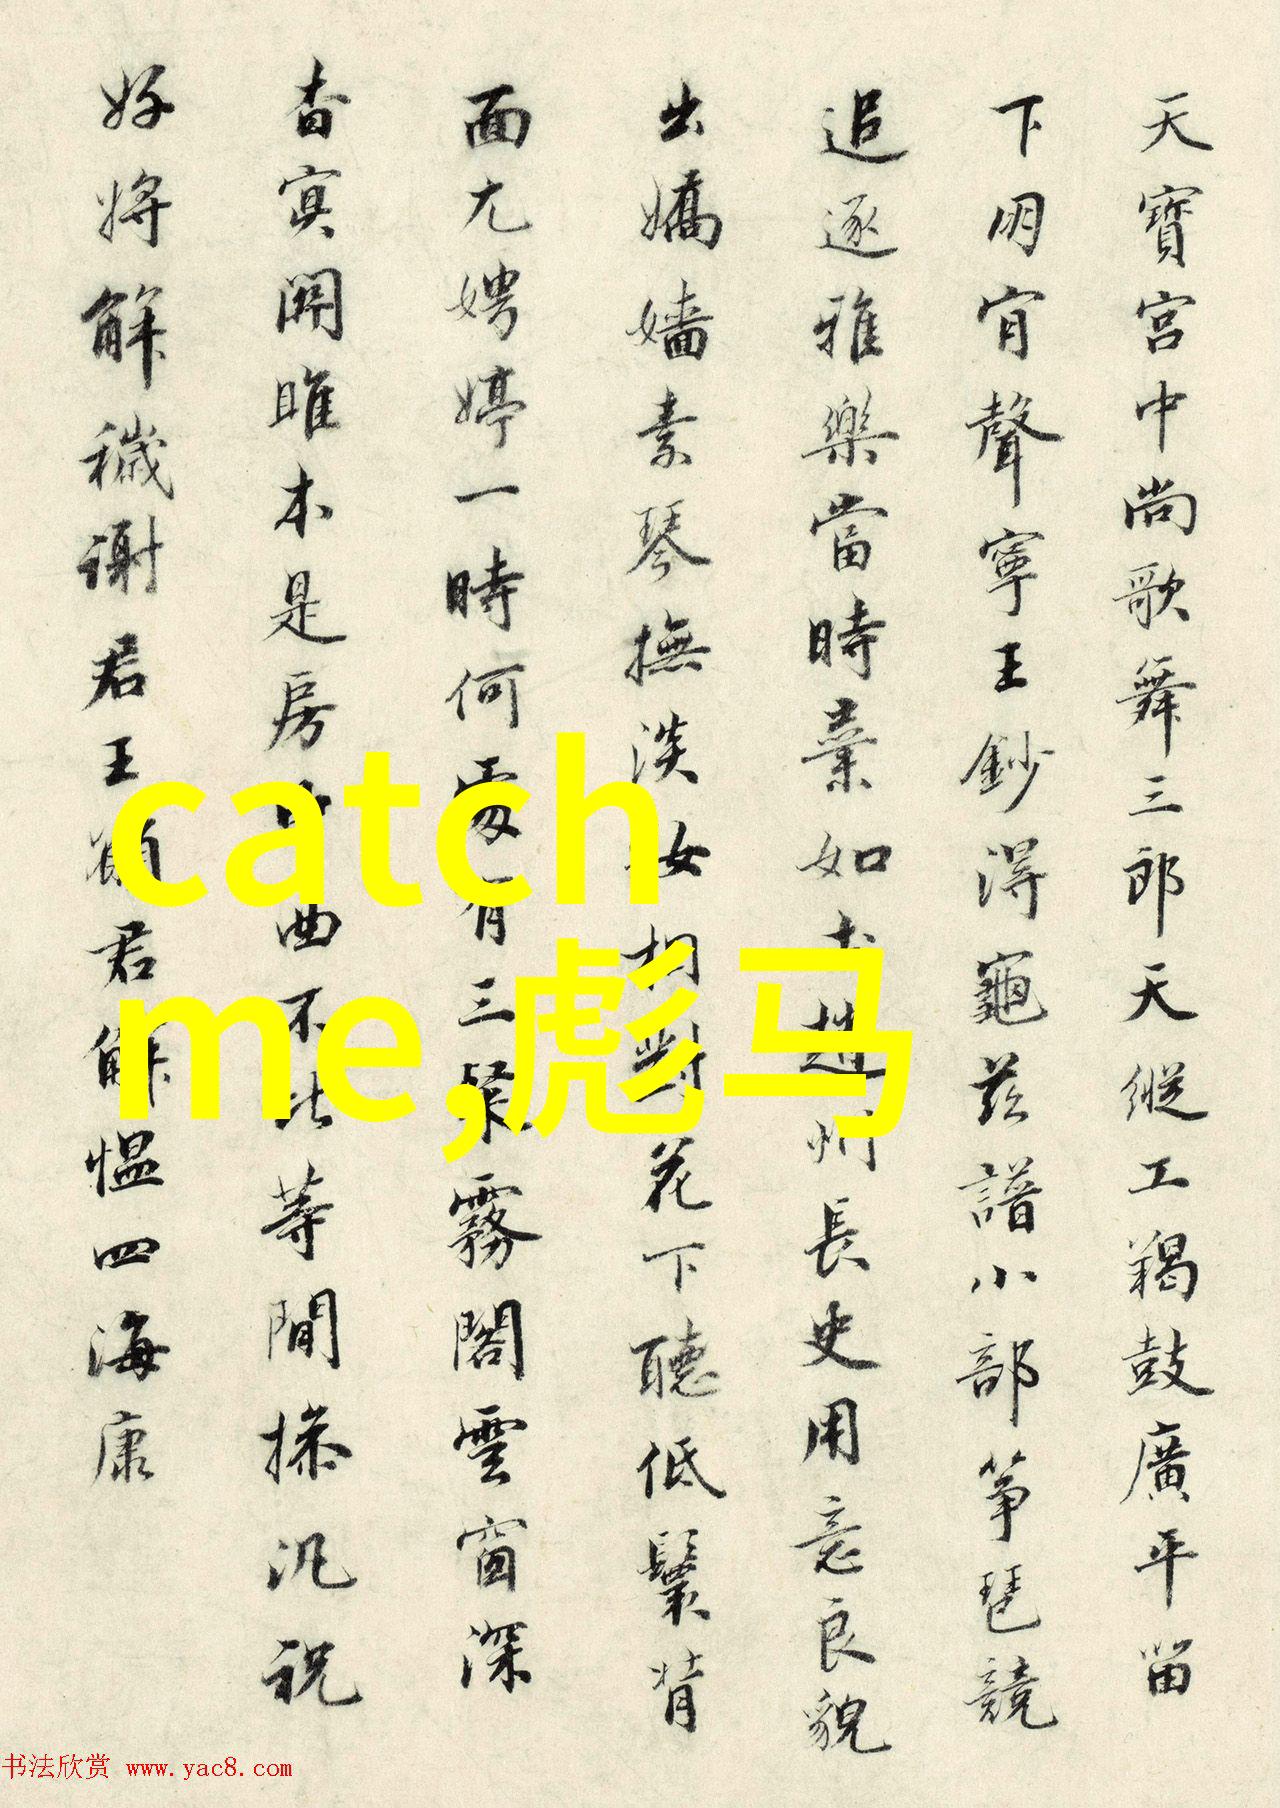 天寶宮中尚歌舞三郎天縱工羯鼓廣平留
下明宵聲寧王鈔得龜茲譜小部箏琵競
追逐雅樂當時棄如土趙州長史用意良貌
出嬌嬙素琴撫淡女相對花下聽低鬟背
面尤娉婷一時何處有三粲霧閣雲窗深
杳冥關雎本是房中曲不比等閒操汎祝
好將解穢謝君王願君解慍四海康
catch
me,彪马
书法欣赏 www.yac8.com